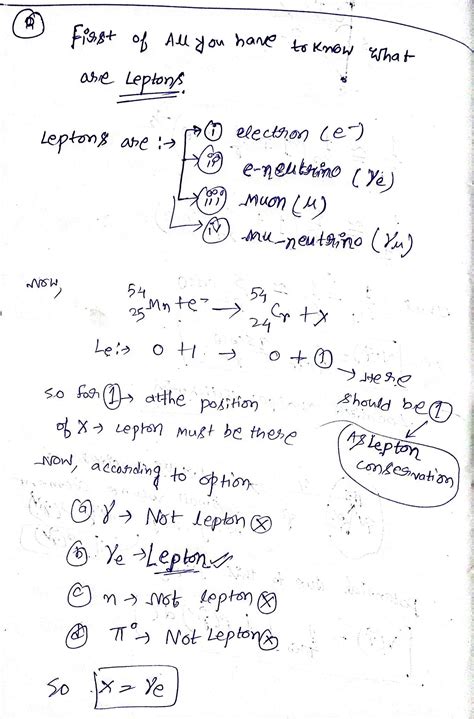 (A)
First of All you have to know what
are Leptons
Leptons are :→ (i) electron (e⁻)
(ii) e-neutrino (γe)
(iii) muon (μ)
(iv) mu-neutrino (γμ)
Now,
⁵⁴₂₅Mn + e⁻ → ⁵⁴₂₄Cr + X
Le :→ 0 +1 → 0 + (1)
→ Here
should be (1)
As Lepton
conservation
so for (1) → at the position
of X → lepton must be there
Now, according to option
(a) γ → Not lepton ⊗
(b) γe → Lepton ✓
(c) n → Not lepton ⊗
(d) π⁰ → Not Lepton ⊗
so X = γe